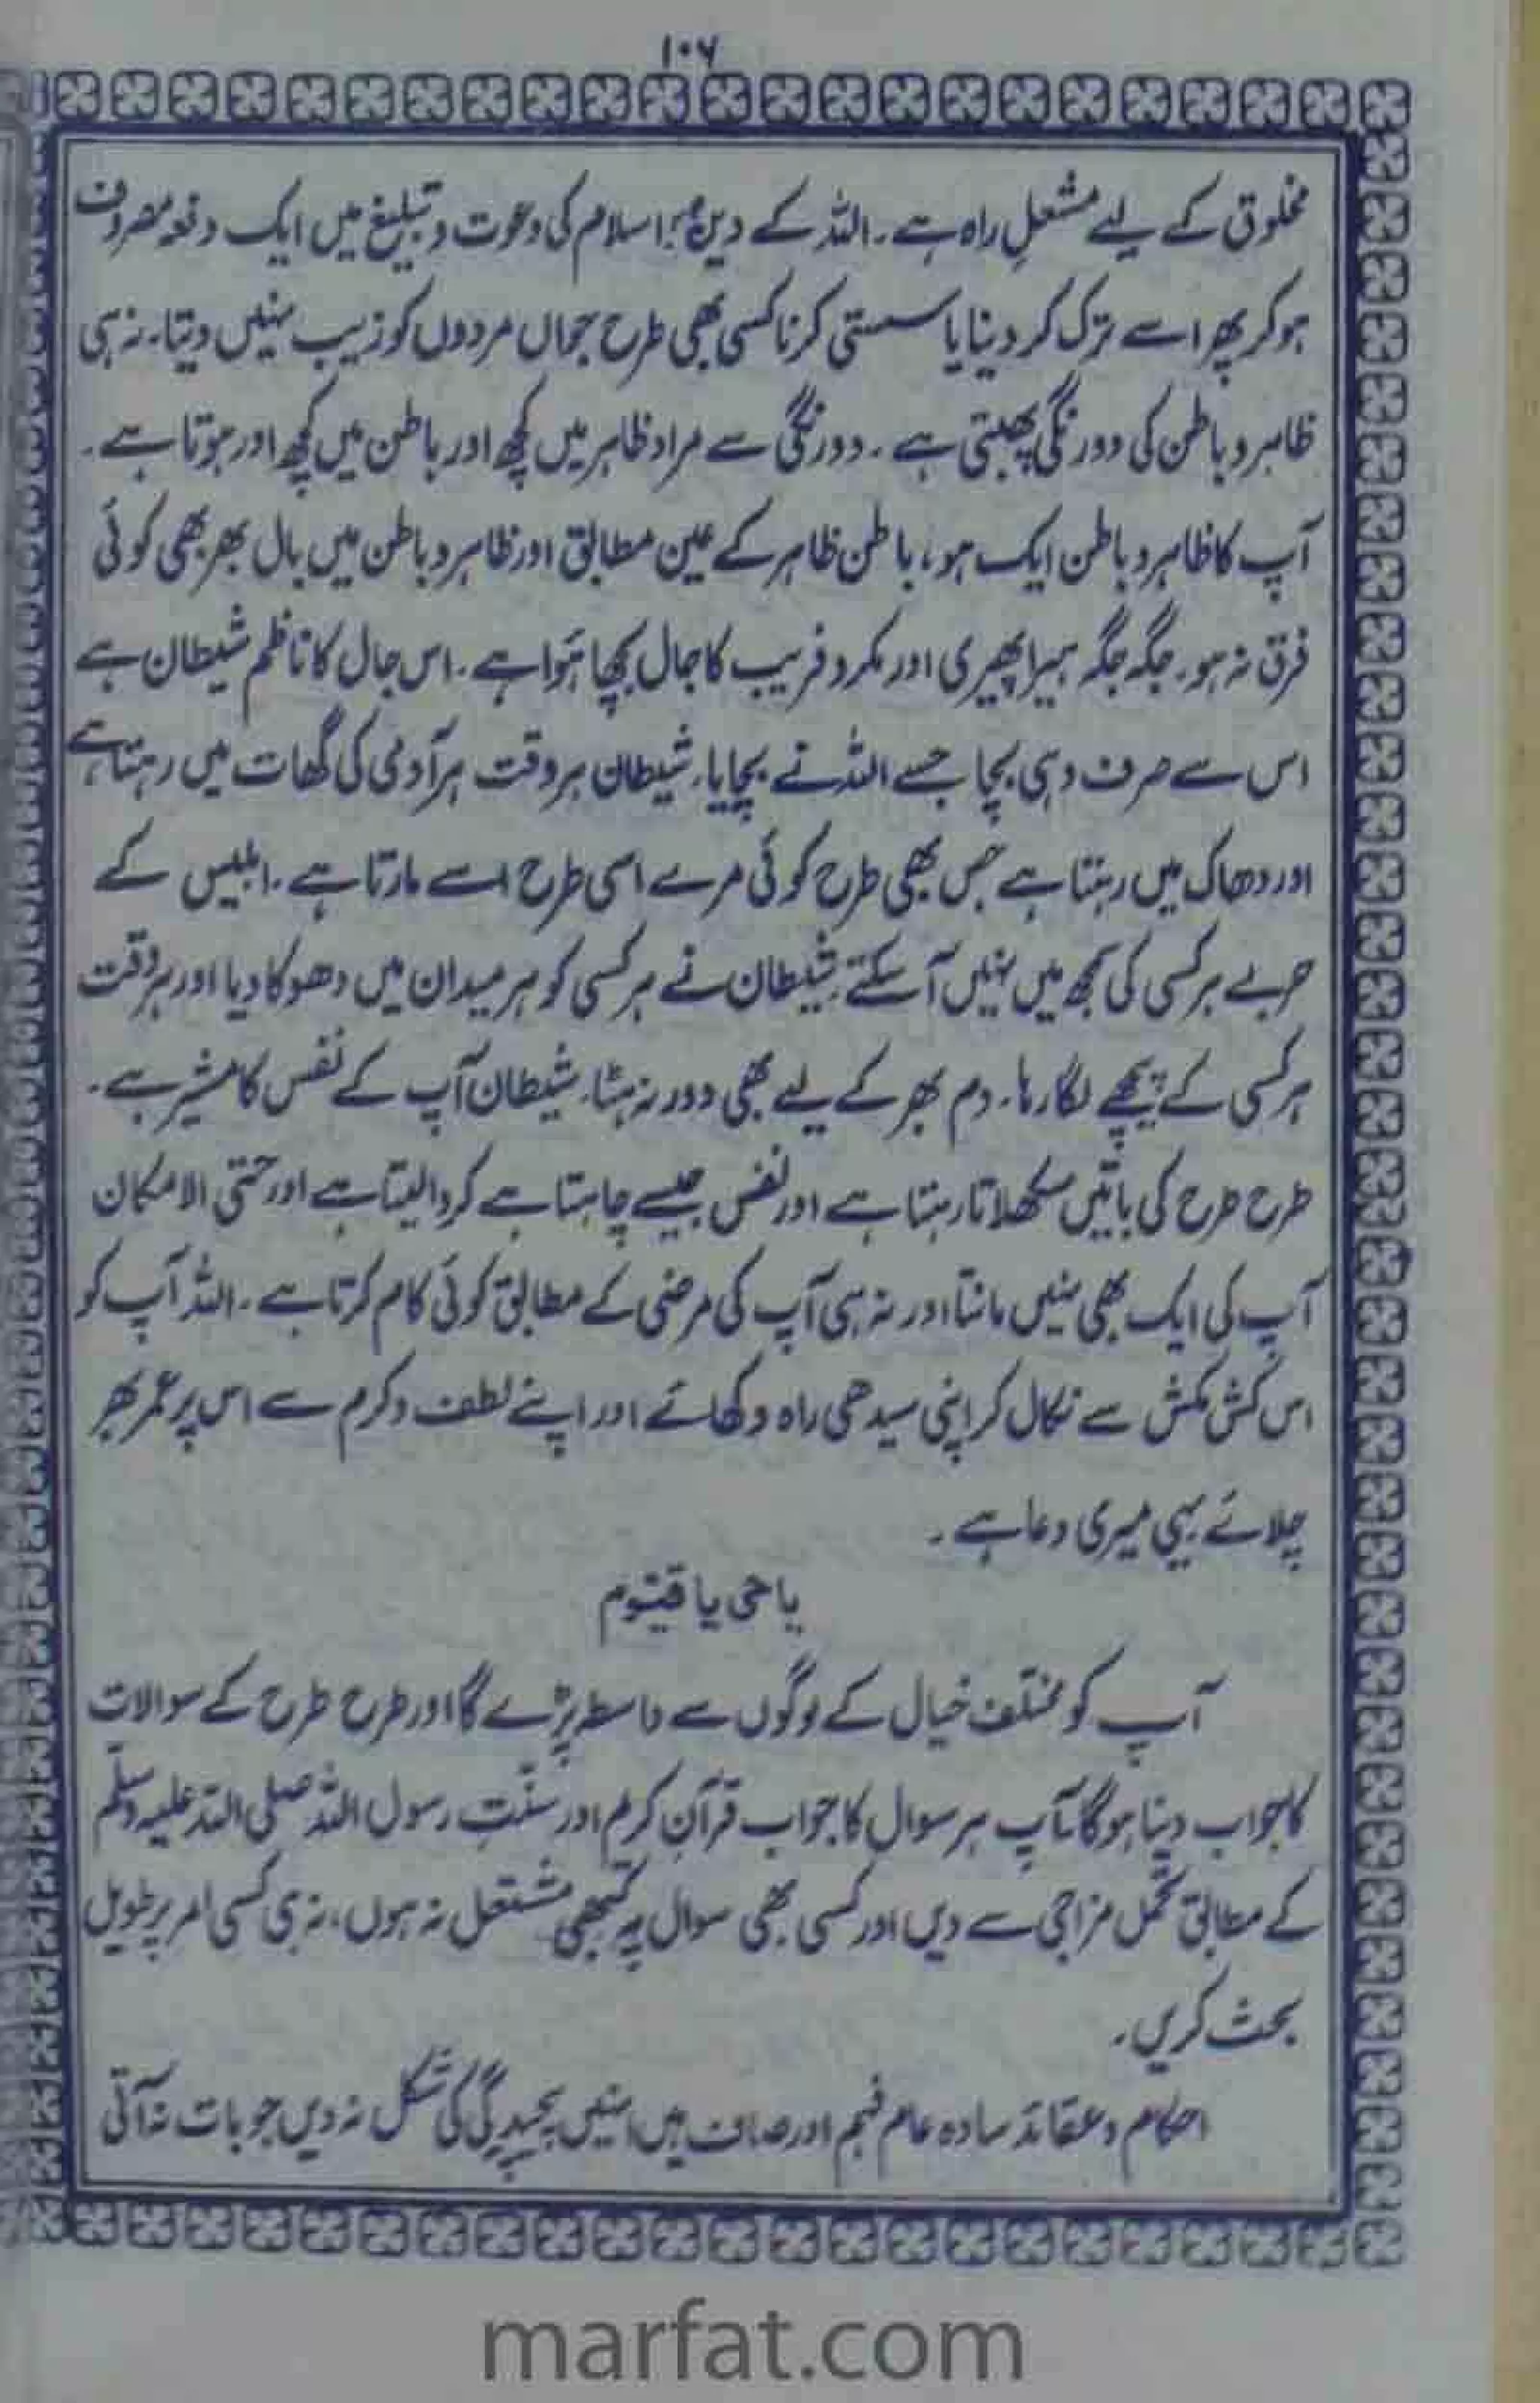 ۱۰۶
مخلوق کے لیے مشعلِ راہ ہے۔ اللہ کے دین اسلام کی دعوت و تبلیغ میں ایک دفعہ مصروف
ہو کر پھر اسے ترک کر دینا یا سستی کرنا کسی بھی طرح جواں مردوں کو زیب نہیں دیتا۔ نہ ہی
ظاہر و باطن کی دورنگی پھبتی ہے۔ دورنگی سے مراد ظاہر میں کچھ اور باطن میں کچھ اور ہوتا ہے۔
آپ کا ظاہر و باطن ایک ہو، باطن ظاہر کے عین مطابق اور ظاہر و باطن میں بال بھر بھی کوئی
فرق نہ ہو۔ جگہ جگہ ہیرا پھیری اور مکر و فریب کا جال بچھا ہُوا ہے۔ اس جال کا ناظم شیطان ہے
اس سے صرف وہی بچا جسے اللہ نے بچایا۔ شیطان ہر وقت ہر آدمی کی گھات میں رہتا ہے
اور دھاک میں رہتا ہے جس بھی طرح کوئی مرے اسی طرح اسے مارتا ہے۔ ابلیس کے
حربے ہر کسی کی سمجھ میں نہیں آ سکتے۔ شیطان نے ہر کسی کو ہر میدان میں دھوکا دیا اور ہر وقت
ہر کسی کے پیچھے لگا رہا۔ دم بھر کے لیے بھی دور نہ ہٹا۔ شیطان آپ کے نفس کا مشیر ہے۔
طرح طرح کی باتیں سکھلاتا رہتا ہے اور نفس جیسے چاہتا ہے کروا لیتا ہے اور حتی الامکان
آپ کی ایک بھی نہیں مانتا اور نہ ہی آپ کی مرضی کے مطابق کوئی کام کرتا ہے۔ اللہ آپ کو
اس کش مکش سے نکال کر اپنی سیدھی راہ دکھائے اور اپنے لطف و کرم سے اس پر عمر بھر
چلائے یہی میری دعا ہے۔
یا حی یا قیوم
آپ کو مختلف خیال کے لوگوں سے واسطہ پڑے گا اور طرح طرح کے سوالات
کا جواب دینا ہو گا۔ آپ ہر سوال کا جواب قرآنِ کریم اور سنّتِ رسول اللہ صلی اللہ علیہ وسلّم
کے مطابق تحمل مزاجی سے دیں اور کسی بھی سوال پہ کبھی مشتعل نہ ہوں، نہ ہی کسی امر پر طویل
بحث کریں۔
احکام و عقائد سادہ عام فہم اور صاف ہیں انہیں پیچیدگی کی شکل نہ دیں جو بات نہ آتی
marfat.com